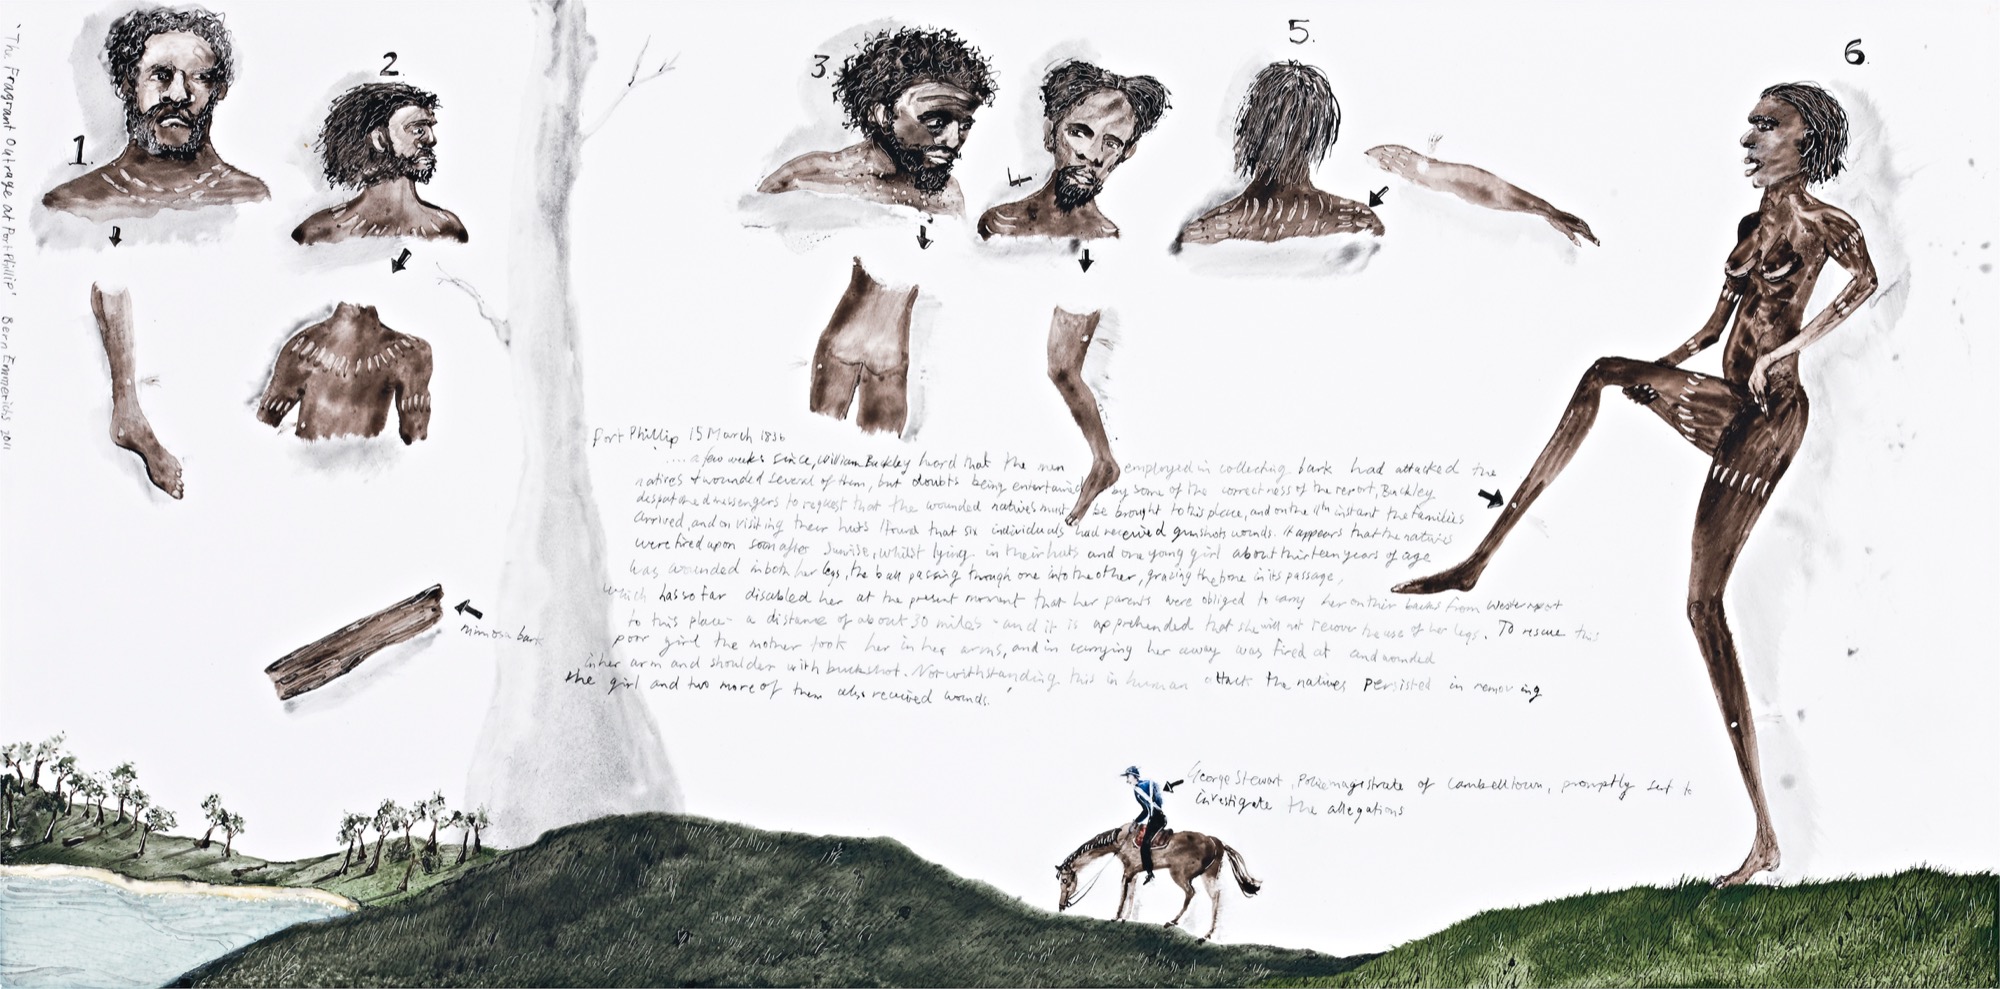 'The Fragrant Outrage at Port Phillip' Bern Emmerichs 2011
1.
2.
3.
4
5.
6.
Port Phillip 15 March 1836
.... a few weeks since, William Buckley heard that the men employed in collecting bark had attacked the
natives & wounded several of them, but doubts being entertained by some of the correctness of the report, Buckley
despatched messengers to request that the wounded natives must be brought to this place, and on the 11th instant the families
arrived, and on visiting their huts I found that six individuals had received gunshots wounds. It appears that the natives
were fired upon soon after sunrise, whilst lying in their huts and one young girl about thirteen years of age
was wounded in both her legs, the ball passing through one into the other, grazing the bone in its passage,
which has so far disabled her at the present moment that her parents were obliged to carry her on their backs from Westernport
to this place - a distance of about 30 miles - and it is apprehended that she will not recover the use of her legs. To rescue this
poor girl the mother took her in her arms, and in carrying her away was fired at and wounded
in her arm and shoulder with buckshot. Notwithstanding this in human attack the natives persisted in removing
the girl and two more of them also received wounds.'
mimosa bark
George Stewart, Police magistrate of Cambelltown, promptly sent to
investigate the allegations